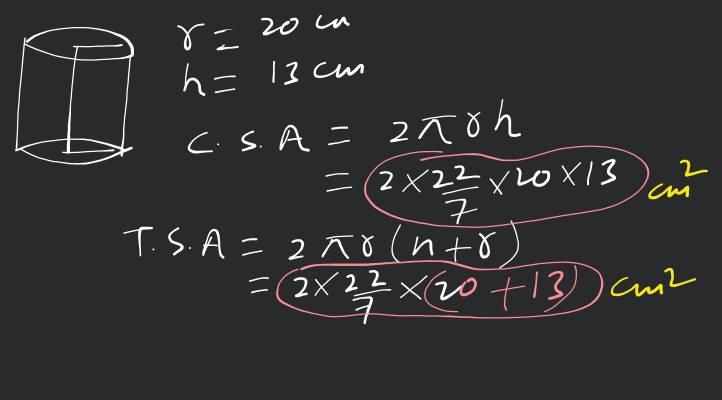 r = 20 cm
h = 13 cm
C.S.A = 2πrh
= 2 × 22/7 × 20 × 13 cm²
T.S.A = 2πr(h+r)
= 2 × 22/7 × (20 + 13) cm²